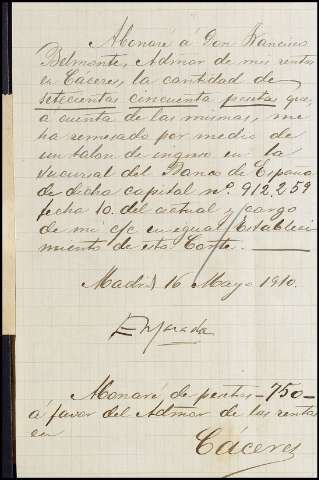 Abonaré á Don Francisco
Belmonte, Admor de mis rentas
en Cáceres, la cantidad de
setecientas cincuenta pesetas que,
a cuenta de las mismas, me
ha remesado por medio de
un talon de ingreso en la
sucursal del Banco de España
de dicha capital nº. 912.259
fecha 10 del actual y cargo
de mi c/c en igual Estableci
miento de esta Corte.
Madrid 16 Mayo 1910.
Abonaré de pesetas -750-
á favor del Admor de las rentas
en
Cáceres